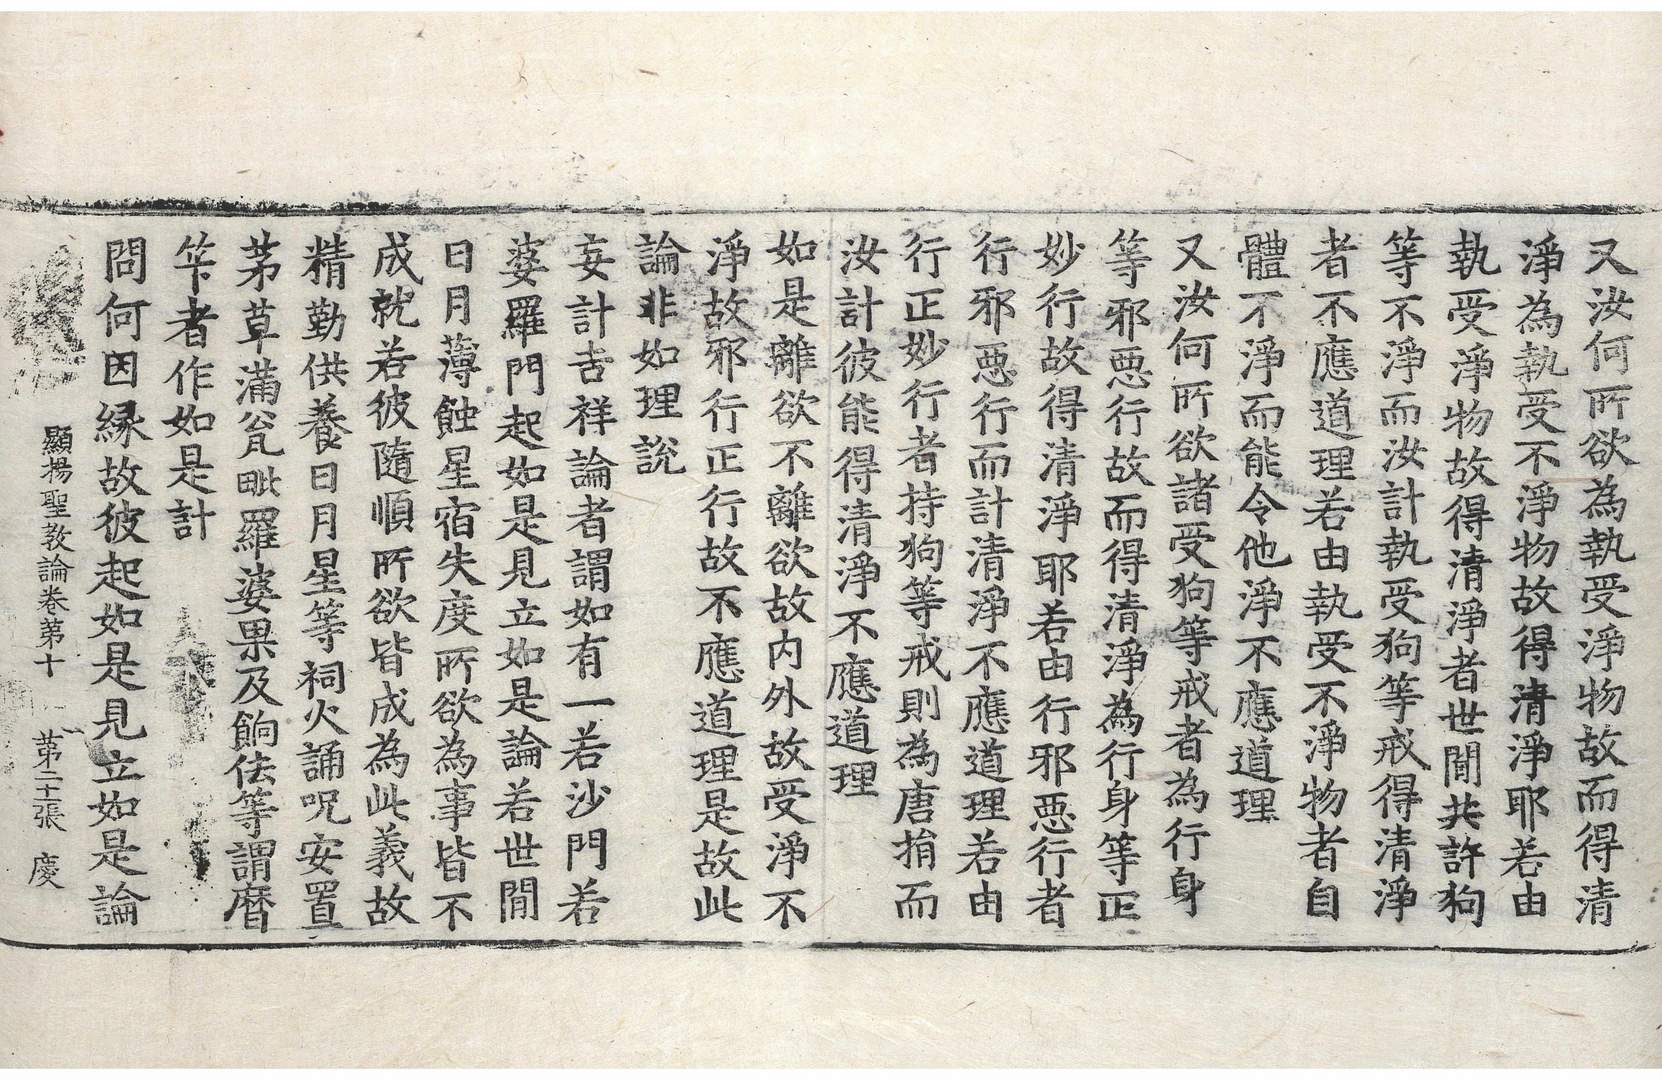 又汝何所欲為執受淨物故而得清
淨為執受不淨物故得清淨耶若由
執受淨物故得清淨者世間共許狗
等不淨而汝計執受狗等戒得清淨
者不應道理若由執受不淨物者自
體不淨而能令他淨不應道理
又汝何所欲諸受狗等戒者為行身
等邪惡行故而得清淨為行身等正
妙行故得清淨耶若由行邪惡行者
行邪惡行而計清淨不應道理若由
行正妙行者持狗等戒則為唐捐而
汝計彼能得清淨不應道理
如是離欲不離欲故內外故受淨不
淨故邪行正行故不應道理是故此
論非如理說
妄計吉祥論者謂如有一若沙門若
婆羅門起如是見立如是論若世間
日月薄蝕星宿失度所欲為事皆不
成就若彼隨順所欲皆成為此義故
精勤供養日月星等祠火誦呪安置
茅草滿瓮毗羅婆果及餉佉等謂曆
筭者作如是計
問何因緣故彼起如是見立如是論
顯揚聖教論卷第十 第二十張 慶